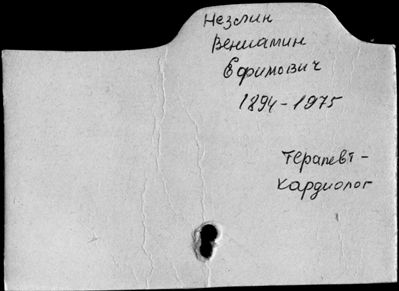 Незлин
Вениамин
Ефимович
1894-1975
терапевт-
кардиолог